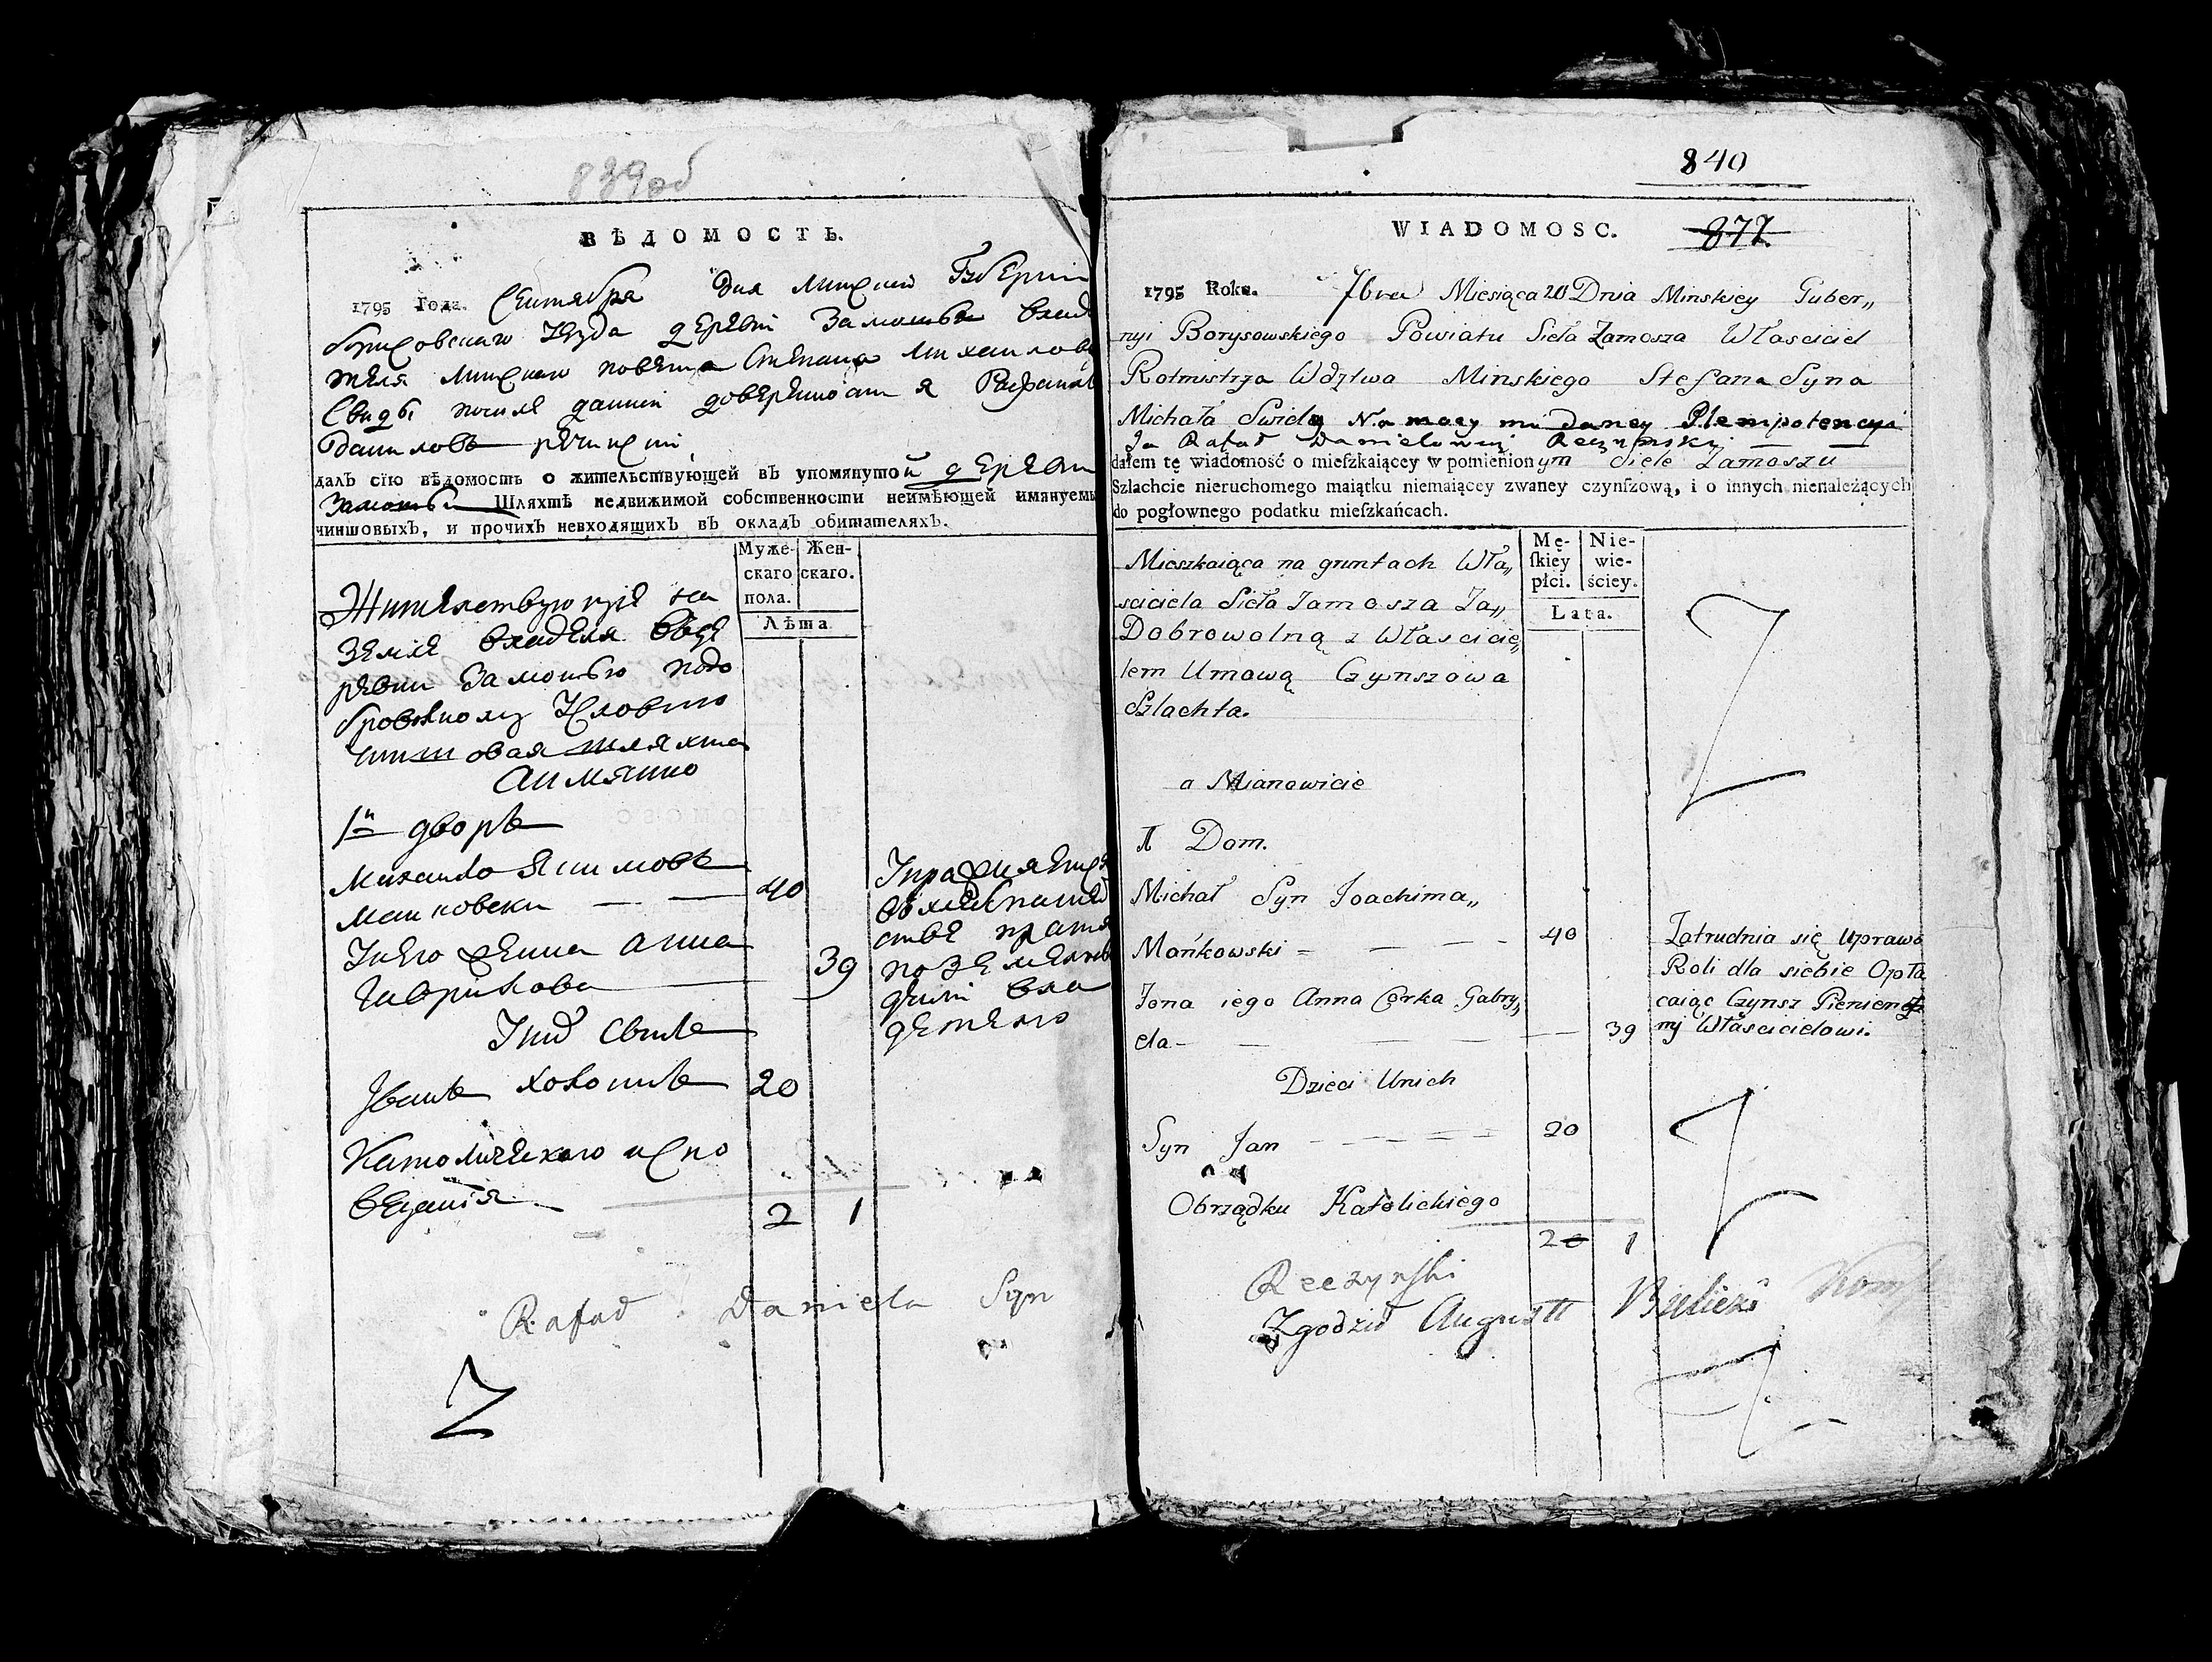 839об
ВѢДОМОСТЬ.
1795 Года. Сентября дня Минской Губернии
Борисовскаго Уезда деревни Замошья владе
теля Минскаго повета Степана Михайлова
Свиды после данной доверенности я Рафаилъ
Даниловъ речински
далъ сїю вѣдомость о жительствующей въ упомянутой деревни
Замошьи Шляхтѣ недвижимой собственности неимѣющей имянуемы
чиншовыхъ, и прочихъ невходящихъ въ окладъ обитателяхъ.
Муже-скаго пола. Жен-скаго.
Лѣта
Жителствующие на
земле владеля вде
ревни Замошью подо
бровольному Условию
Чиншовая шляхта
Аимянно
1й дворъ
Михайло Якимовъ
Манковски — — 40
Уиего жена анна
Гаврилова 39
Уних Сынъ
Иванъ холостъ 20
Католическаго испо
ведания 2 1
Упражняется
вхлебопашe
стве
владетелю
Rafał Daniela Syn
840
WIADOMOSC. 877
1795 Roku. 7bra Miesiąca 20 Dnia Minskiey Guber„
nyi Borysowskiego Powiatu Sieła Zamosza Własciciel
Rotmistrza Wdztwa Minskiego Stefana Syna
Michała Swidy Na mocy mi daney Plempotencyi
Ja Rafał Danielowicz Reczynsky
dałem tę wiadomość o mieſzkaiącey w pomienionym Siele Zamoszu
Szlachcie nieruchomego maiątku niemaiącey zwaney czynſzową, i o innych nienależących
do pogłownego podatku mieſzkańcach.
Mę-ſkiey płci. Nie-wie-ściey.
Lata.
Mieszkaiąca na gruntach Wła„
sciciela Sieła Zamosza Za„
Dobrowolną z Własciciel„
lem Umową Czynszowa
Szlachta.
a Mianowicie
1 Dom.
Michał Syn Joachima„
Mańkowski = — — — 40
Zona iego Anna Corka Gabry„
ela — — — — 39
Zatrudnia się Uprawą
Roli dla siebie Opła
caiąc Czynsz Pienieng
ny Właścicielowi.
Dzieci Unich
Syn Jan — — — — 20
Obrządku Katolickiego
2 1
Reczynski
Zgodził August